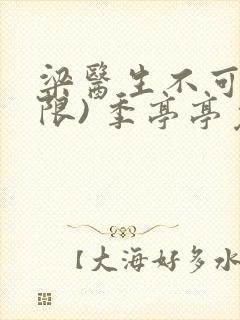 梁醫生不可
限) 季亭亭
【大海好多水